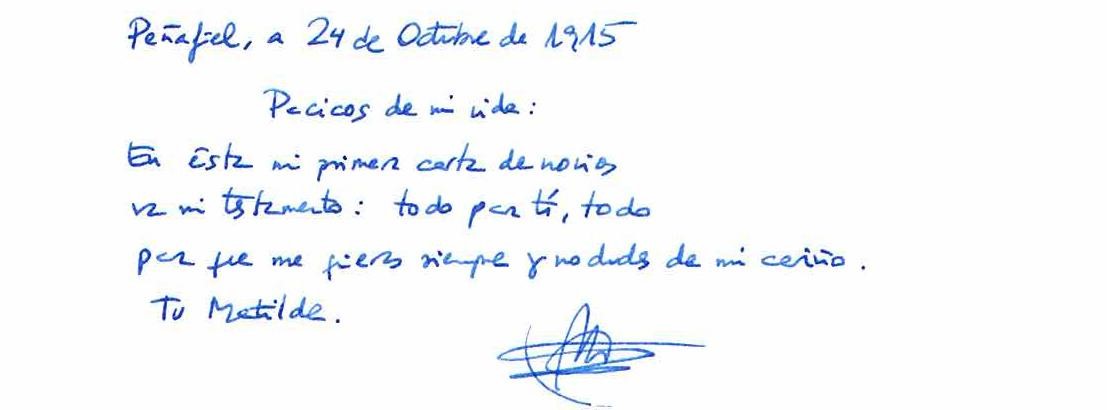 Peñafiel, a 24 de Octubre de 1915
Pacicos de mi vida:
En ésta mi primera carta de novios
va mi testamento: todo para tí, todo
para que me quieras siempre y no dudes de mi cariño.
Tu Matilde.